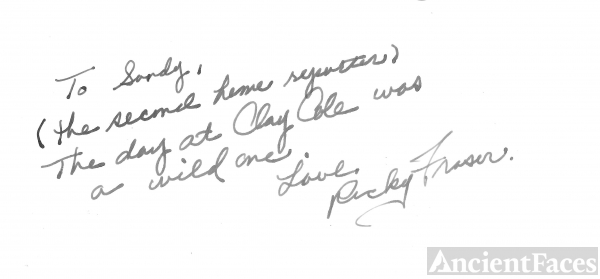 To Sandy,
(the second home reporter)
The day at Clay Cole was
a wild one.
Love,
Ricky Fraser.
AncientFaces